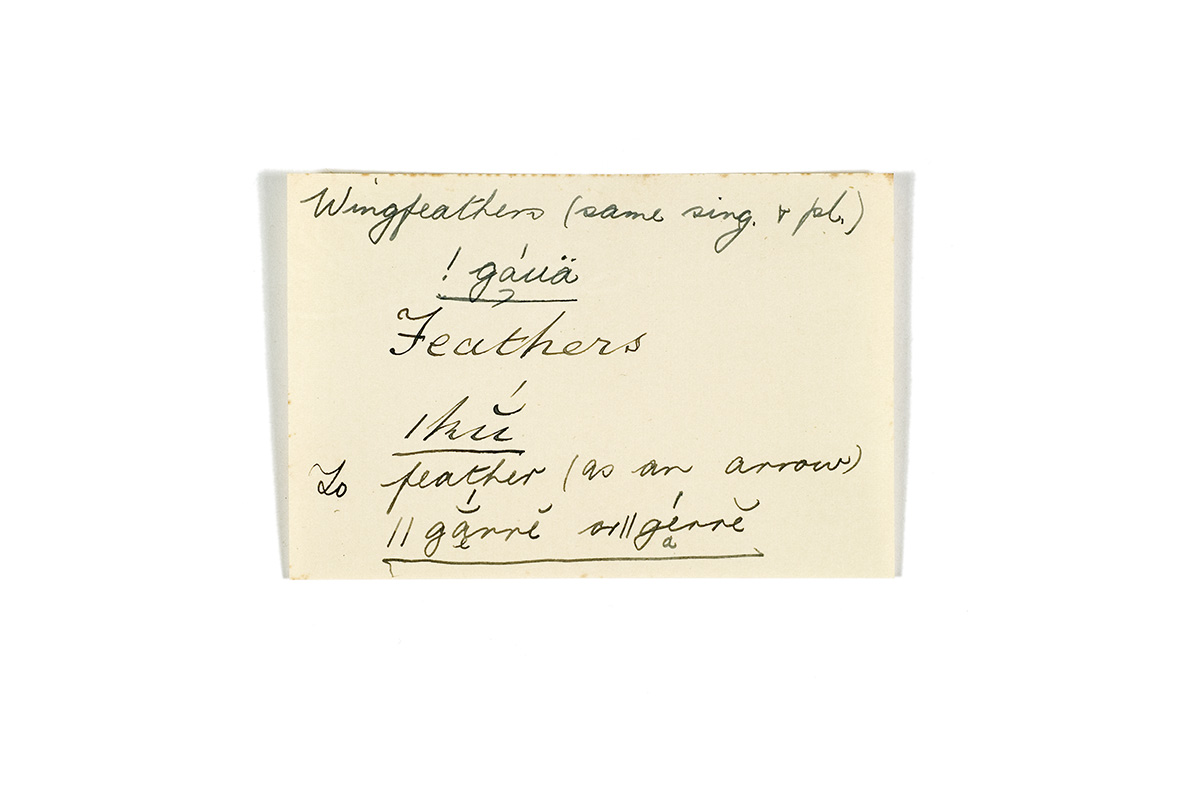 Wingfeathers (same sing. & pl.)
! gáuä
Feathers
|kŭ́
To feather (as an arrow)
|| gắ̤rrĕ or || gérrĕ
e a